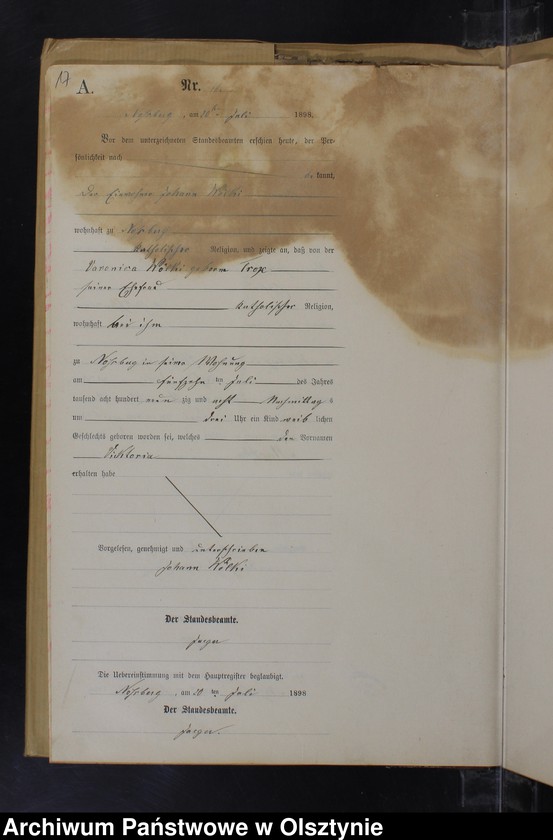 17
A.
Nr.
am 20ten Juli 1898.
Vor dem unterzeichneten Standesbeamten erschien heute, der Per-
sönlichkeit nach
kannt,
Der Einwohner Johann Wölki
wohnhaft zu
katholischer Religion, und zeigte an, daß von der
Veronica Wölki geborene Prox
seiner Ehefrau
katholischer Religion,
wohnhaft bei ihm
zu in seiner Wohnung
am fünfzehn ten Juli des Jahres
tausend acht hundert neun zig und acht Nachmittag s
um drei Uhr ein Kind weib lichen
Geschlechts geboren worden sei, welches den Vornamen
Viktoria
erhalten habe
Vorgelesen, genehmigt und unterschrieben
Johann Wölki
Der Standesbeamte.
Die Uebereinstimmung mit dem Hauptregister beglaubigt.
am 20 ten Juli 1898
Der Standesbeamte.
Archiwum Państwowe w Olsztynie